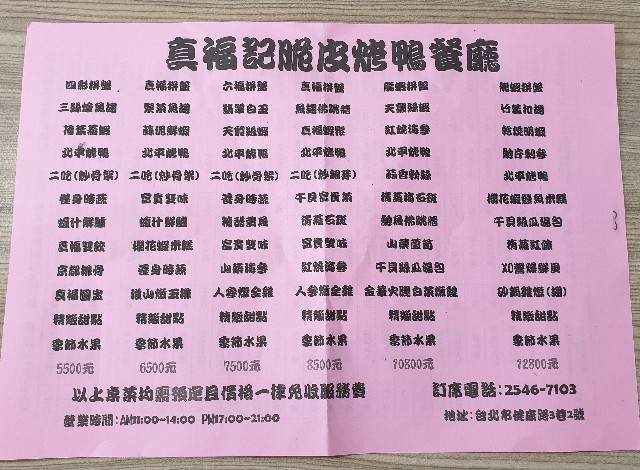 真福記脆皮烤鴨餐廳
四彩拼盤 真福拼盤 六福拼盤 真福拼盤 龍蝦拼盤 龍蝦拼盤
三絲燴魚翅 髮菜魚翅 翡翠白玉 魚翅佛跳牆 天糧絲蝦 竹笙扣翅
蒜泥鮮蝦 真福蝦鬆 紅燒海參 乾燒明蝦
北平烤鴨 北平烤鴨 北平烤鴨 北平烤鴨 北平烤鴨 鮑片刺參
二吃(炒骨架) 二吃(炒骨架) 二吃(炒骨架) 蒜香粉絲 北平烤鴨
健身時蔬 富貴雙味 健身時蔬 干貝富貴菜 清蒸海石斑 櫻花蝦鱘魚米糕
蠔汁鮮鮑 蠔汁鮮鮑 清蒸石斑 鮑魚佛跳牆 干貝絲瓜湯包
真福雙餃 櫻花蝦米糕 富貴雙味 富貴雙味 清蒸紅條
京都排骨 健身時蔬 紅燒海參 干貝絲瓜湯包 XO醬爆鮮貝
真福園盅 人參燉全雞 人參燉全雞 金華火腿白菜燉雞 砂鍋雞燉(翅)
精緻甜點 精緻甜點 精緻甜點 精緻甜點 精緻甜點 精緻甜點
季節水果 季節水果 季節水果 季節水果 季節水果 季節水果
5500元 6500元 7500元 8500元 10800元 12800元
以上桌菜均需預定且價格一律免收服務費 訂席電話:2546-7103
營業時間:AM11:00~14:00 PM17:00~21:00 地址:台北市健康路3巷2號